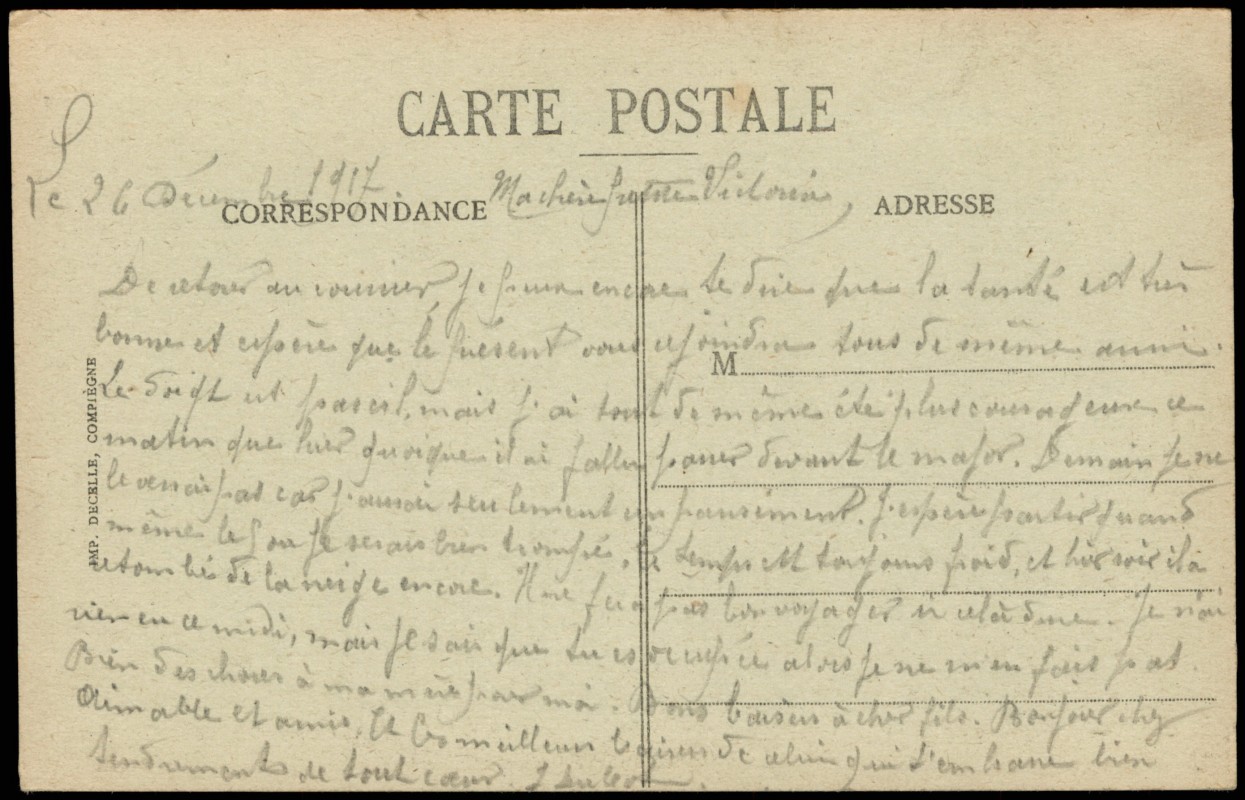 CARTE POSTALE
Le 26 Décembre 1917
CORRESPONDANCE
Ma chère petite Victoria,
ADRESSE
De retour du courrier, je peux encore te dire que la santé est très
bonne et espère que le présent vous rejoindra tous de même aussi.
M
Le doigt est pareil, mais j'ai tout de même été plus courageux ce
matin que hier quoique il a fallu passer devant le major. Demain je ne
le verrai pas car j'aurai seulement un pansement. J'espère partir quand
même le ou je serais bien trompé, le temps est toujours froid, et hier soir il a
retombé de la neige encore. Il ne fera pas bon voyager si cela dure. Je n'ai
rien eu ce midi, mais je sais que tu es occupée alors je ne m'en fais pas.
Bien des choses à ma mère pour moi. Bons baisers à cher fils. Bonjour chez
Aimable et amis. Et les meilleurs baisers de celui qui t'embrasse bien
tendrement de tout cœur.
IMP. DECELLE, COMPIÈGNE